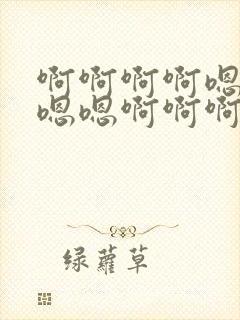 啊啊啊啊嗯
嗯嗯啊啊啊
绿萝草